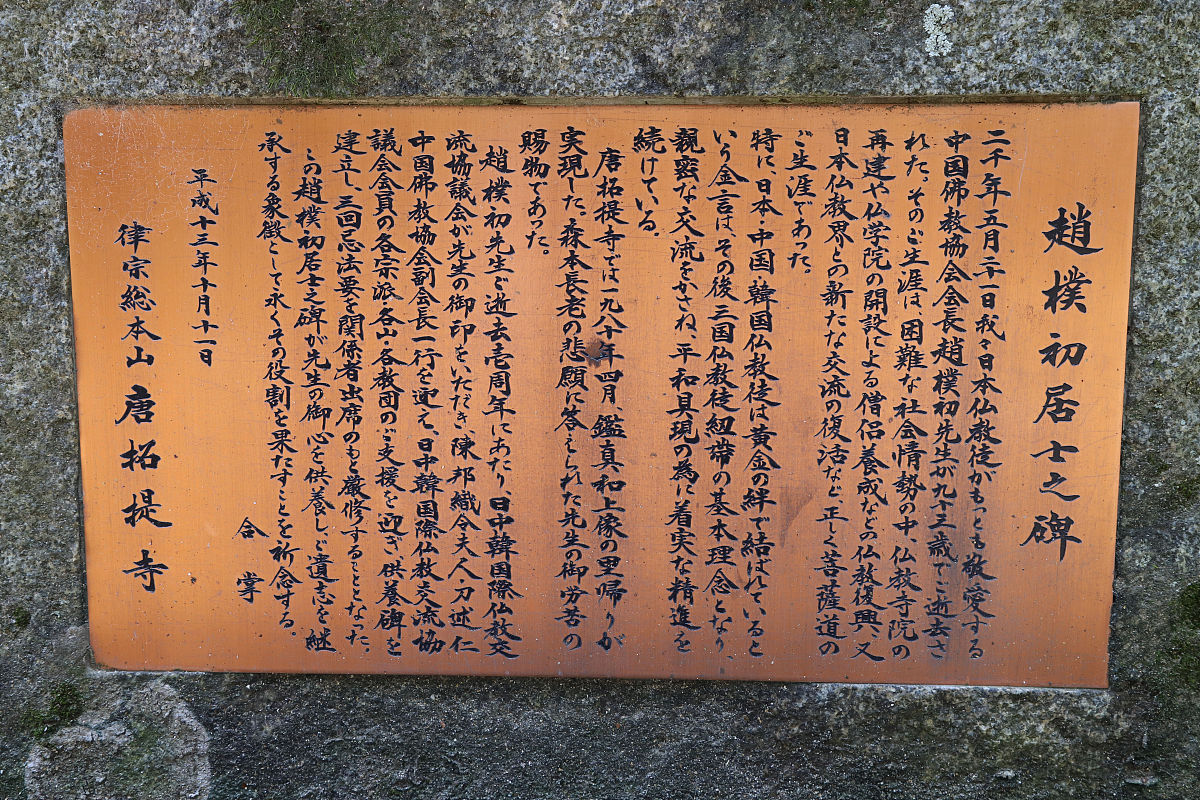 趙樸初居士之碑
二千年五月二十一日我々日本仏教徒がもっとも敬愛する
中国佛教協会会長趙樸初先生が九十三歳でご逝去さ
れた。そのご生涯は、困難な社会情勢の中、仏教寺院の
再建や仏学院の開設による僧侶養成などの仏教復興、又
日本仏教界との新たな交流の復活など、正しく菩薩道の
ご生涯であった。
特に、日本・中国・韓国仏教徒は黄金の絆で結ばれていると
いう金言は、その後三国仏教徒紐帯の基本理念となり、
親密な交流をかさね、平和具現の為に着実な精進を
続けている。
唐招提寺では一九八十年四月、鑑真和上像の里帰りが
実現した。森本長老の悲願に答えられた先生の御労苦の
賜物であった。
趙樸初先生ご逝去壱周年にあたり、日中韓国際仏教交
流協議会が先生の御印をいただき、陳邦織令夫人・刀述仁
中国佛教協会副会長一行を迎え、日中韓国際仏教交流協
議会会員の各宗派・各山・各教団のご支援を迎ぎ供養碑を
建立し、三回忌法要を関係者出席のもと厳修することとなった。
この趙樸初居士之碑が先生の御心を供養しご遺志を継
承する象徴として永くその役割を果たすことを祈念する。
合掌
平成十三年十月十一日
律宗総本山 唐招提寺